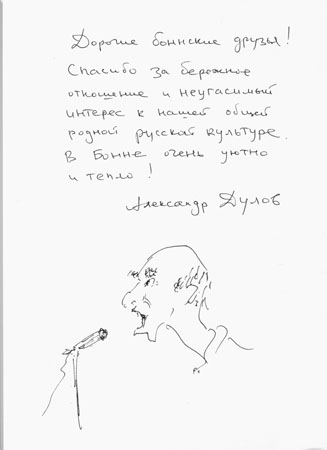 Дорогие боннские друзья!
Спасибо за бережное
отношение и неугасимый
интерес к нашей общей
родной русской культуре.
В Бонне очень уютно
и тепло!
Александр Дулов